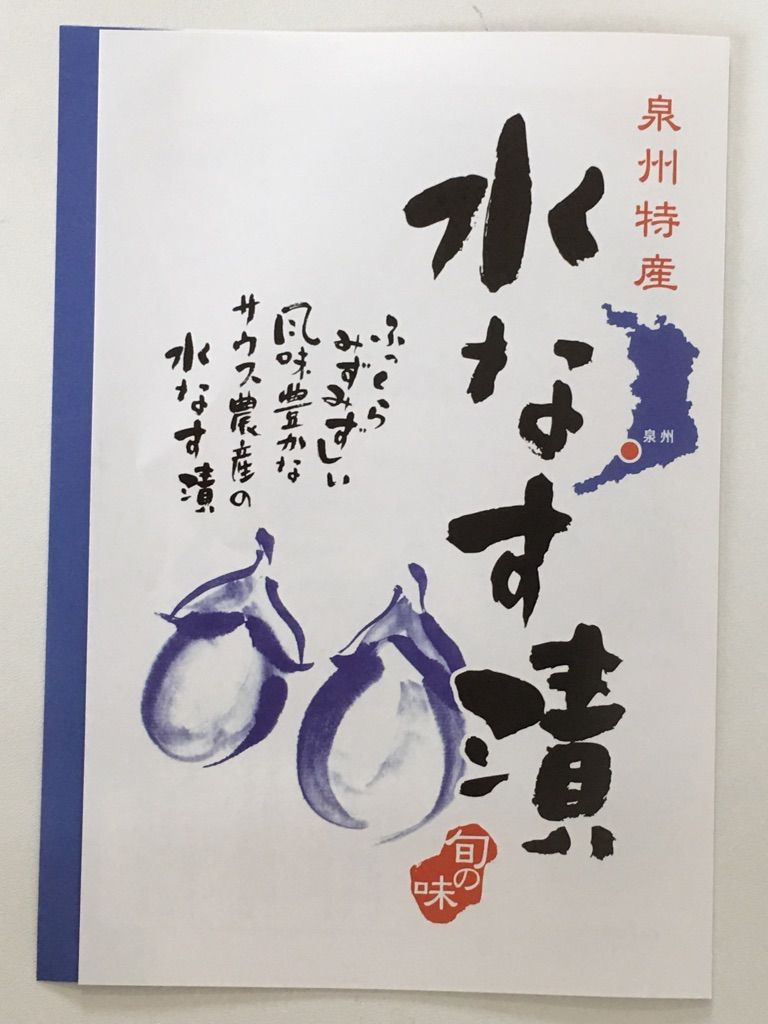 泉州特産
泉州
水なす漬
ふっくら
みずみずしい
風味豊かな
サウス農産の
水なす漬
旬の
味